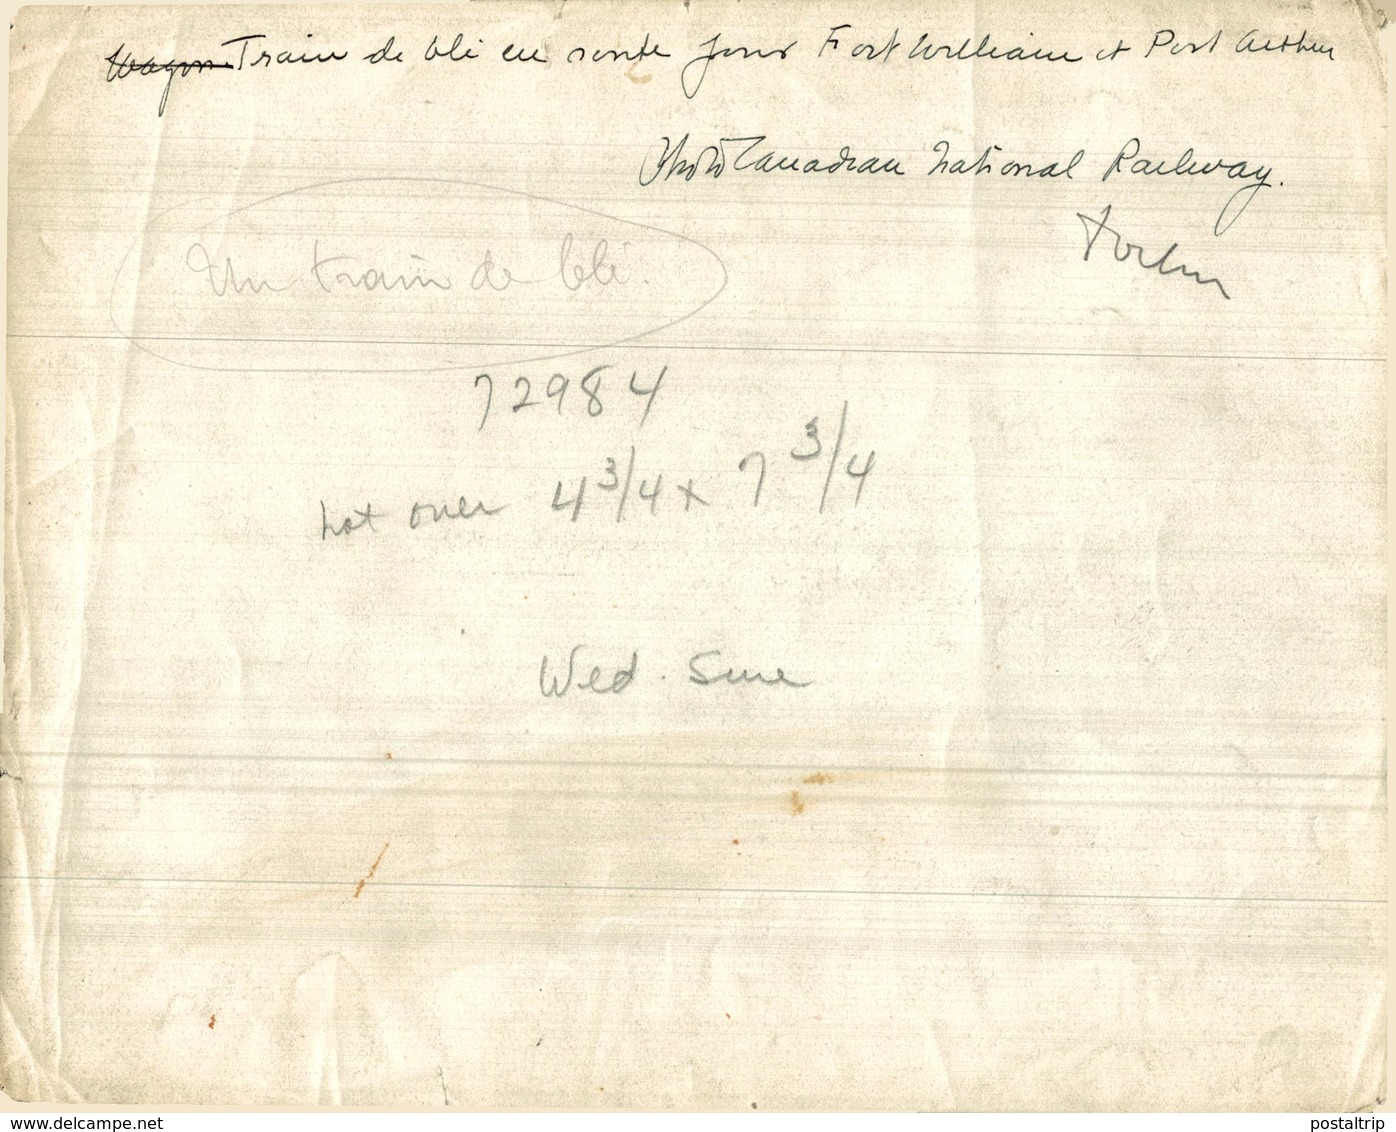 Wagon Train de blé en route pour Fort William et Port Arthur
Photo Canadian National Railway.
Un train de blé.
72984
not over 4 3/4 x 7 3/4
Wed. Sure
www.delcampe.net
postaltrip